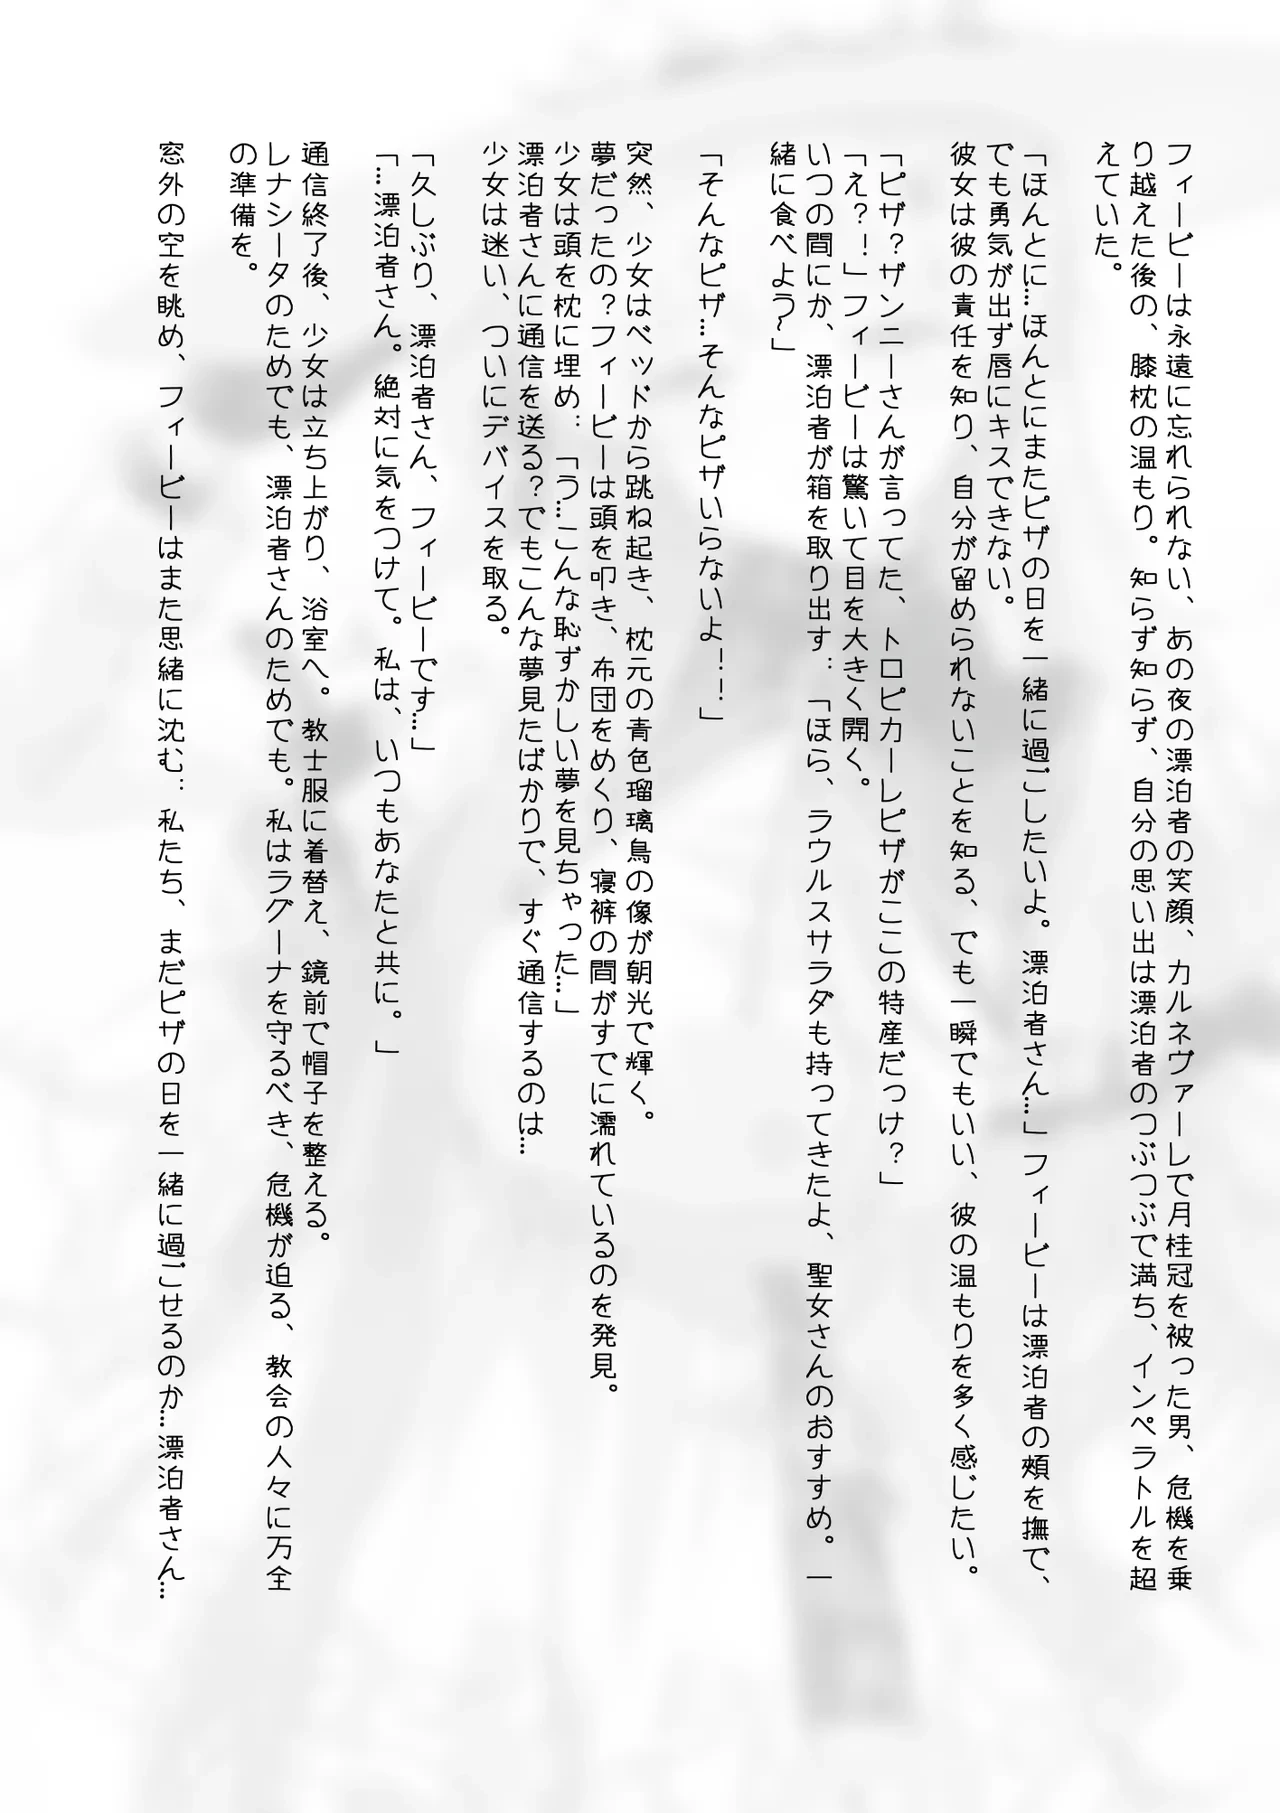 フィービーは永遠に忘れられない、あの夜の漂泊者の笑顔、カルネヴァーレで月桂冠を被った男、危機を乗
り越えた後の、膝枕の温もり。知らず知らず、自分の思い出は漂泊者のつぶつぶで満ち、インペラトルを超
えていた。
「ほんとに…ほんとにまたピザの日を一緒に過ごしたいよ。漂泊者さん…」フィービーは漂泊者の頬を撫で、
でも勇気が出ず唇にキスできない。
彼女は彼の責任を知り、自分が留められないことを知る、でも一瞬でもいい、彼の温もりを多く感じたい。
「ピザ？ザンニーさんが言ってた、トロピカーレピザがここの特産だっけ？」
「え？！」フィービーは驚いて目を大きく開く。
いつの間にか、漂泊者が箱を取り出す：「ほら、ラウルスサラダも持ってきたよ、聖女さんのおすすめ。一
緒に食べよう〜」
「そんなピザ…そんなピザいらないよ！！」
突然、少女はベッドから跳ね起き、枕元の青色瑠璃鳥の像が朝光で輝く。
夢だったの？フィービーは頭を叩き、布団をめくり、寝裤の間がすでに濡れているのを発見。
少女は頭を枕に埋め：「う…こんな恥ずかしい夢を見ちゃった…」
漂泊者さんに通信を送る？でもこんな夢見たばかりで、すぐ通信するのは…
少女は迷い、ついにデバイスを取る。
「久しぶり、漂泊者さん、フィービーです…」
「…漂泊者さん。絶対に気をつけて。私は、いつもあなたと共に。」
通信終了後、少女は立ち上がり、浴室へ。教士服に着替え、鏡前で帽子を整える。
レナシータのためでも、漂泊者さんのためでも。私はラグーナを守るべき、危機が迫る、教会の人々に万全
の準備を。
窓外の空を眺め、フィービーはまた思緒に沈む：私たち、まだピザの日を一緒に過ごせるのか…漂泊者さん…